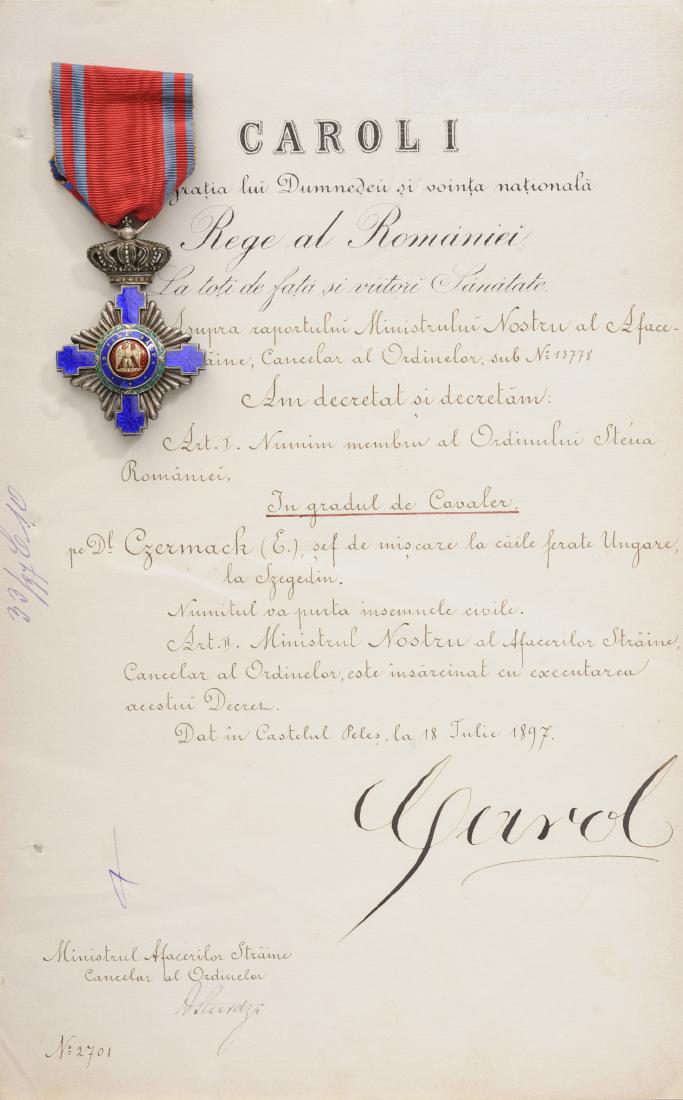 CAROL I
grația lui Dumnedeu și voința națională
Rege al României
La toți de față și viitori Sănătate.
Asupra raportului Ministrului Nostru al Aface-
răine, Cancelar al Ordinelor, sub Nº 13778
Am decretat și decretăm:
Art. I. Numim membru al Ordinului Stéua
României,
In gradul de Cavaler,
pe Dl Czermack (E.), șef de mișcare la căile ferate Ungare,
la Szegedin.
Numitul va purta insemnele civile.
Art. II. Ministrul Nostru al Afacerilor Străine,
Cancelar al Ordinelor, este însărcinat cu executarea
acestui Decret.
Dat în Castelul Peleș, la 18 Iulie 1897.
Carol
Ministrul Afacerilor Străine
Cancelar al Ordinelor
DSturdza
Nº 2701